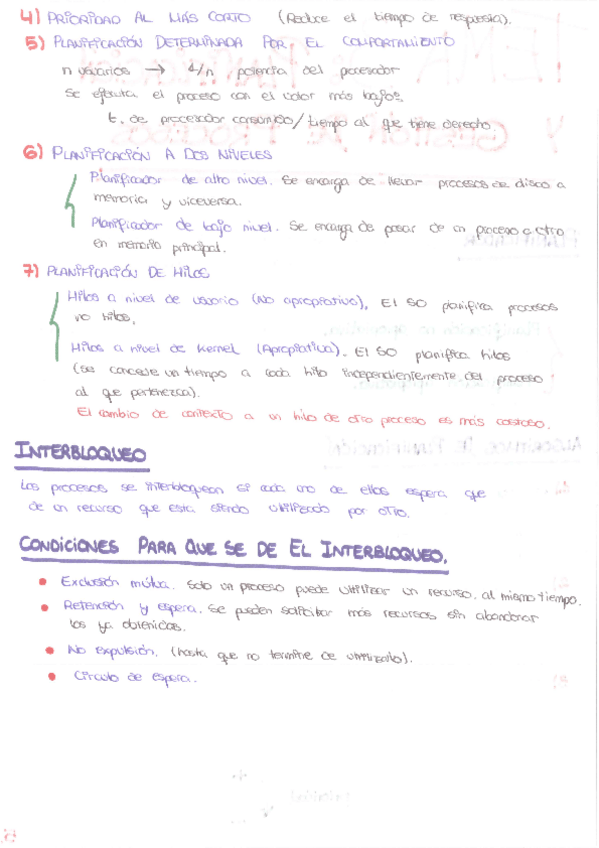 4) PRIORIDAD AL MÁS CORTO (Reduce el tiempo de respuesta).
5) PLANIFICACIÓN DETERMINADA POR EL COMPORTAMIENTO
n usuarios → 1/n potencia del procesador
Se ejecuta el proceso con el valor más bajos.
t. de procesador consumido/tiempo al que tiene derecho
6) PLANIFICACIÓN A DOS NIVELES
Planificador de alto nivel. Se encarga de llevar procesos de disco a
memoria y viceversa.
Planificador de bajo nivel. Se encarga de pasar de un proceso a otro
en memoria principal.
7) PLANIFICACIÓN DE HILOS
Hilos a nivel de usuario (No apropiativo). El SO planifica procesos
no hilos.
Hilos a nivel de kernel (Apropiativa). El SO planifica hilos
(se concede un tiempo a cada hilo independientemente del proceso
al que pertenezca).
El cambio de contexto a un hilo de otro proceso es más costoso.
INTERBLOQUEO
Los procesos se interbloquean si cada uno de ellos espera que
de un recurso que esta siendo utilizado por otro.
CONDICIONES PARA QUE SE DE EL INTERBLOQUEO.
• Exclusión mútua. Solo un proceso puede utilizar un recurso. al mismo tiempo.
• Retención y espera. Se pueden solicitar más recursos sin abandonar
los ya obtenidos.
• No expulsión. (hasta que no termine de utilizarlo).
• Círculo de espera.